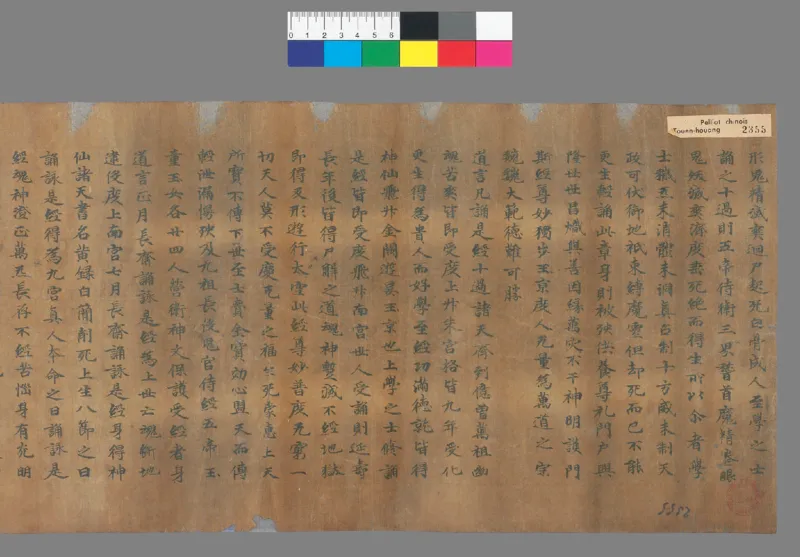 Pelliot chinois
Touen-houang 2355
形鬼精滅爽迴尸起死白骨成人至學之士
誦之十過則五帝侍衛三界稽首魔精喪眼
鬼妖滅爽濟度垂死絕而得生所以尒者學
士穢炁未消體未洞真召制十方威未制天
政可伏御地祇束縛魔靈但却死而已不能
更生輕誦此章身則被殃供養尊礼門戶興
隆世世昌熾與善因緣萬灾不干神明護門
斯經尊妙獨步玉京度人无量為萬道之宗
巍巍大範德難可勝
道言凡誦是經十過諸天齊到億曾萬祖幽
魂苦爽皆即受度上升朱宮格皆九年受化
更生得為貴人而好學至經功滿德就皆得
神仙飛升金闕遊宴玉京也上學之士修誦
是經皆即受度飛升南宮世人受誦則延壽
長年後皆得尸解之道魂神暫滅不經地獄
即得反形遊行太空此經尊妙普度无窮一
切天人莫不受慶无量之福生死蒙惠上天
所寶不傳下世至士賷金寶効心盟天而傳
輕泄漏慢殃及九祖長役鬼官侍經五帝玉
童玉女各廿四人營衛神文保護受經者身
道言正月長齋誦詠是經為上世亡魂斷地
逮役度上南宮七月長齋誦詠是經身得神
仙諸天書名黃籙白簡削死上生八節之日
誦詠是經得為九宮真人本命之日誦詠是
經魂神澄正萬炁長存不經苦惱身有光明